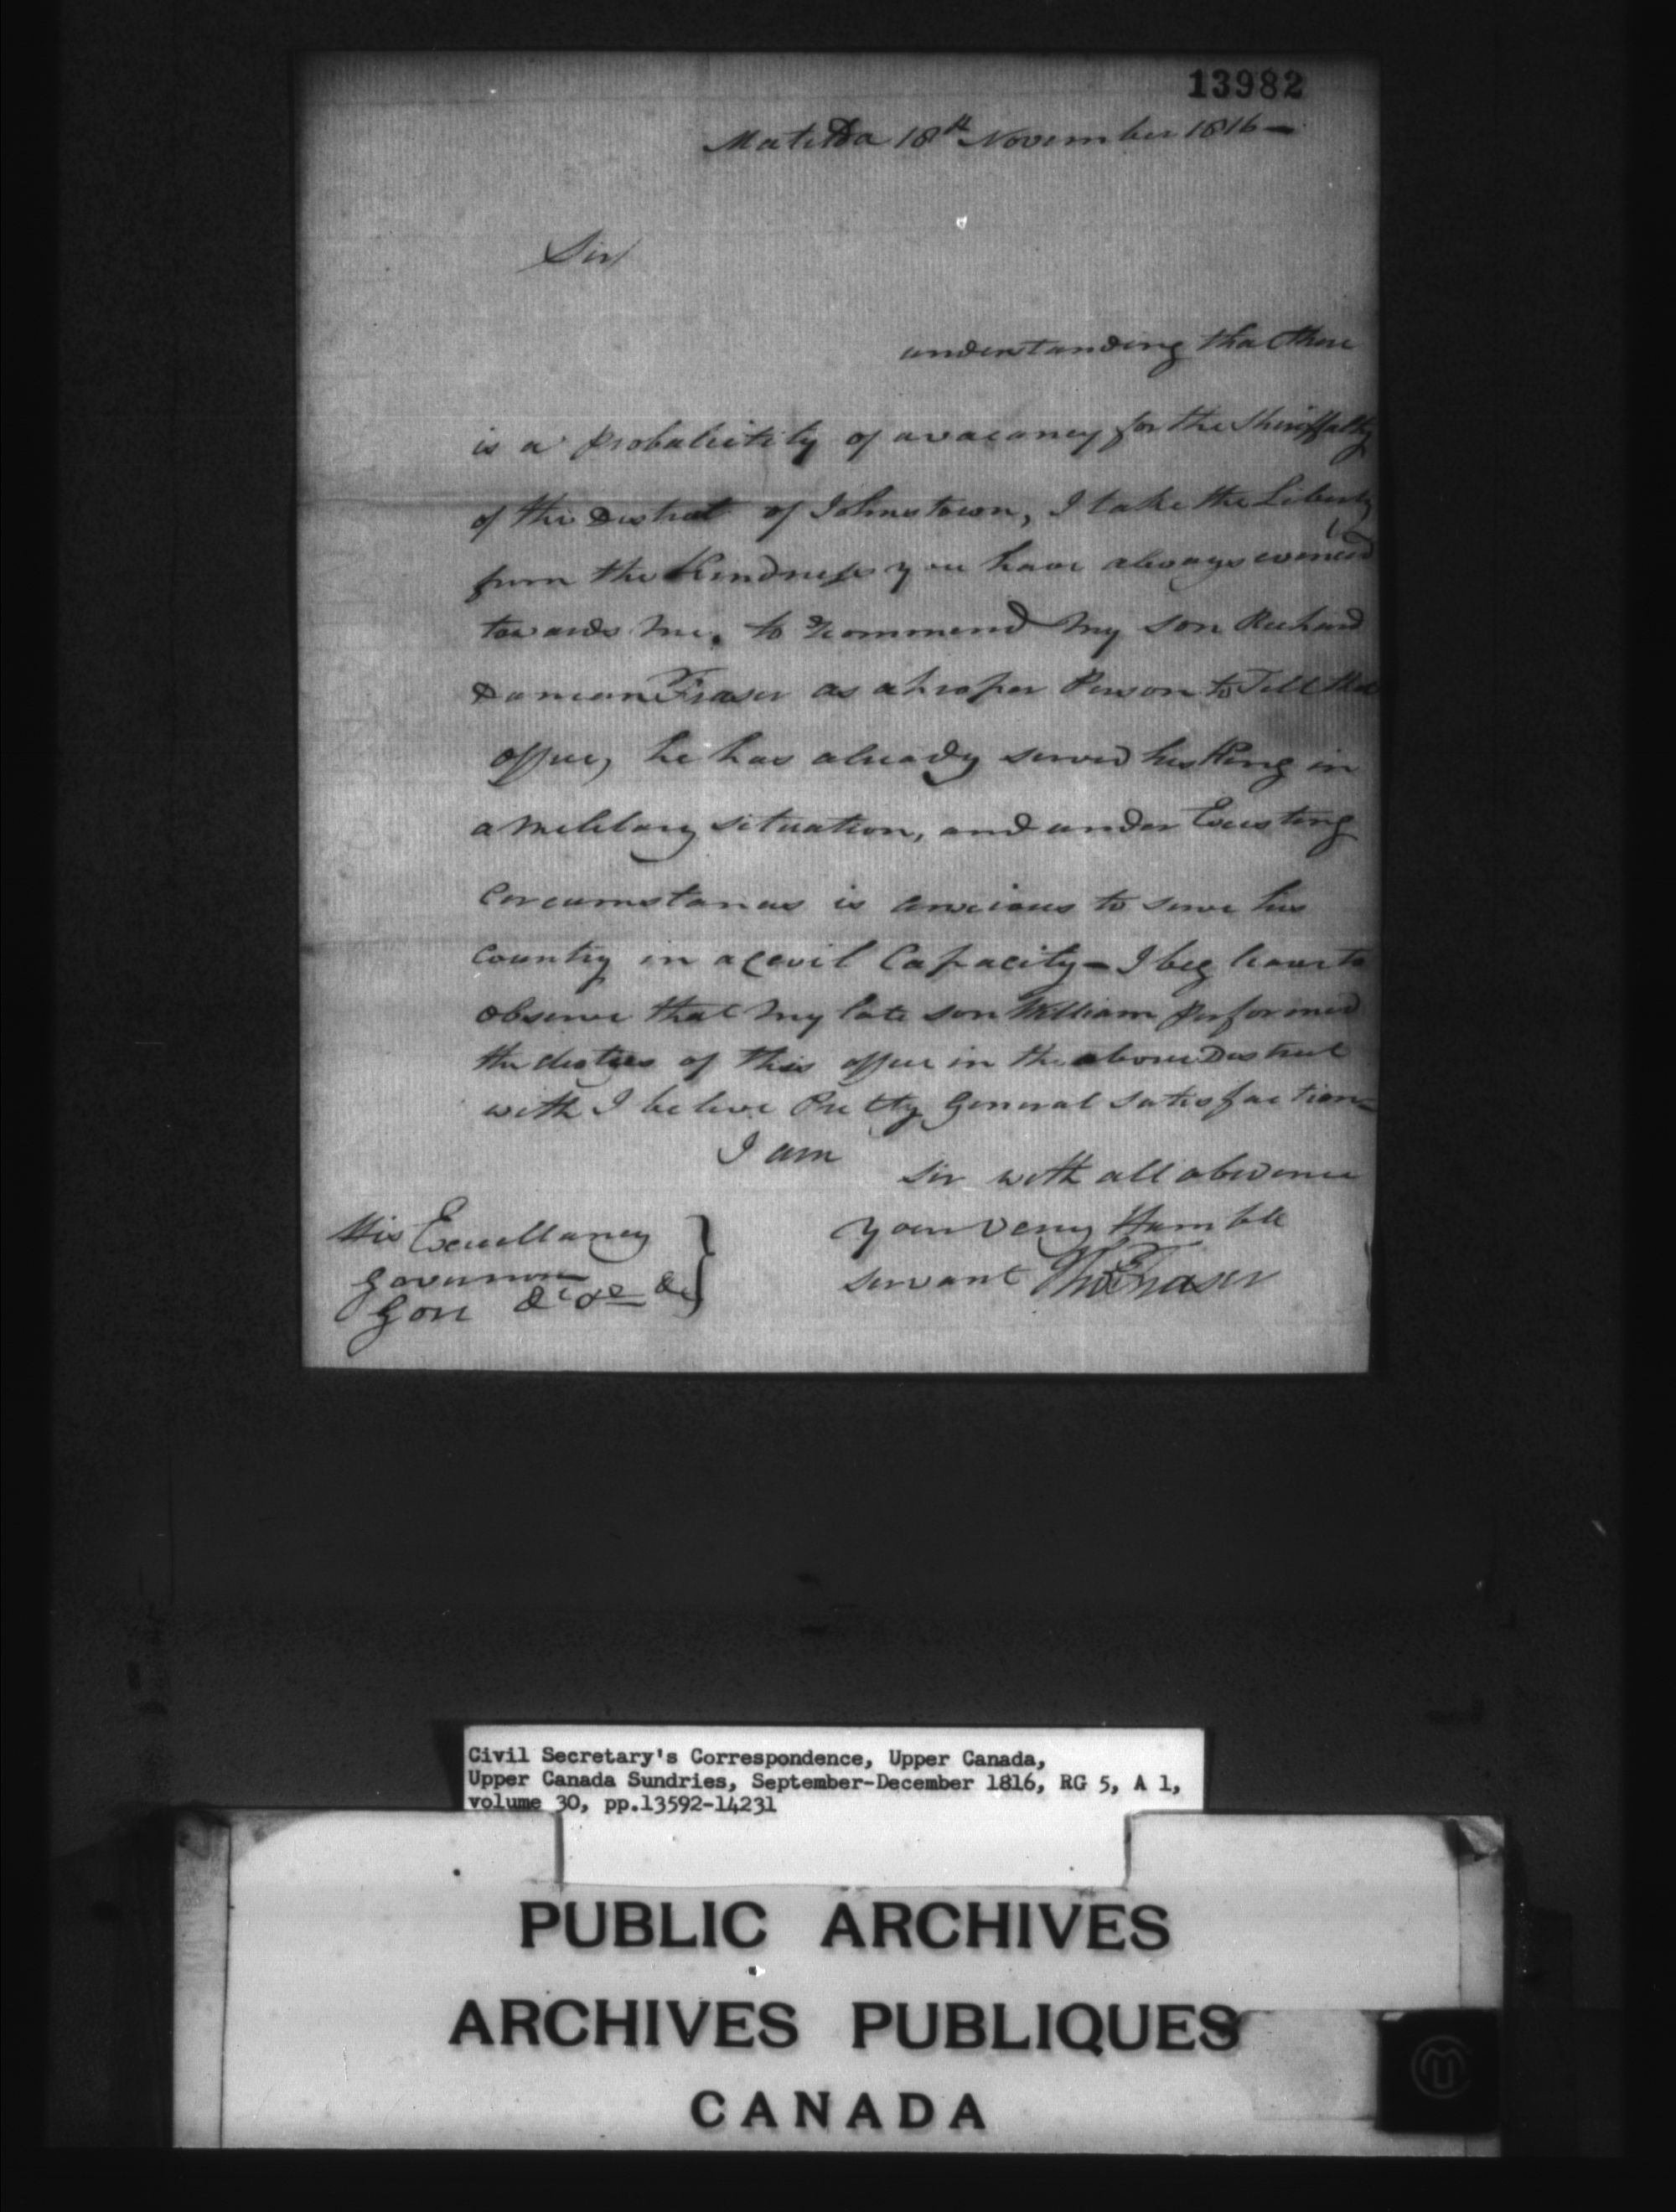 13982
Matilda 18th November 1816 -
Sir
understanding that there
is a probabilitity of a vacancy for the Shiriffalty
of the District of Johnstown, I take the Liberty
from the Kindness you have always evinced
towards me. to recommend my son Richard
Duncan Fraser as a proper Person to Fill that
office, he has already served his King in
a Military situation, and under Existing
Circumstances is ancious to serve his
Country in a Cevil Capacity - I beg leave to
observe that my late son William performed
the duties of this office in the above District
with I beleve Pretty General satisfaction -
I am
Sir with all obedience
your very Humble
servant Thos Fraser
His Excellancy
Governor
Gore &c &c &c
Civil Secretary's Correspondence, Upper Canada,
Upper Canada Sundries, September-December 1816, RG 5, A 1,
volume 30, pp.13592-14231
PUBLIC ARCHIVES
ARCHIVES PUBLIQUES
CANADA